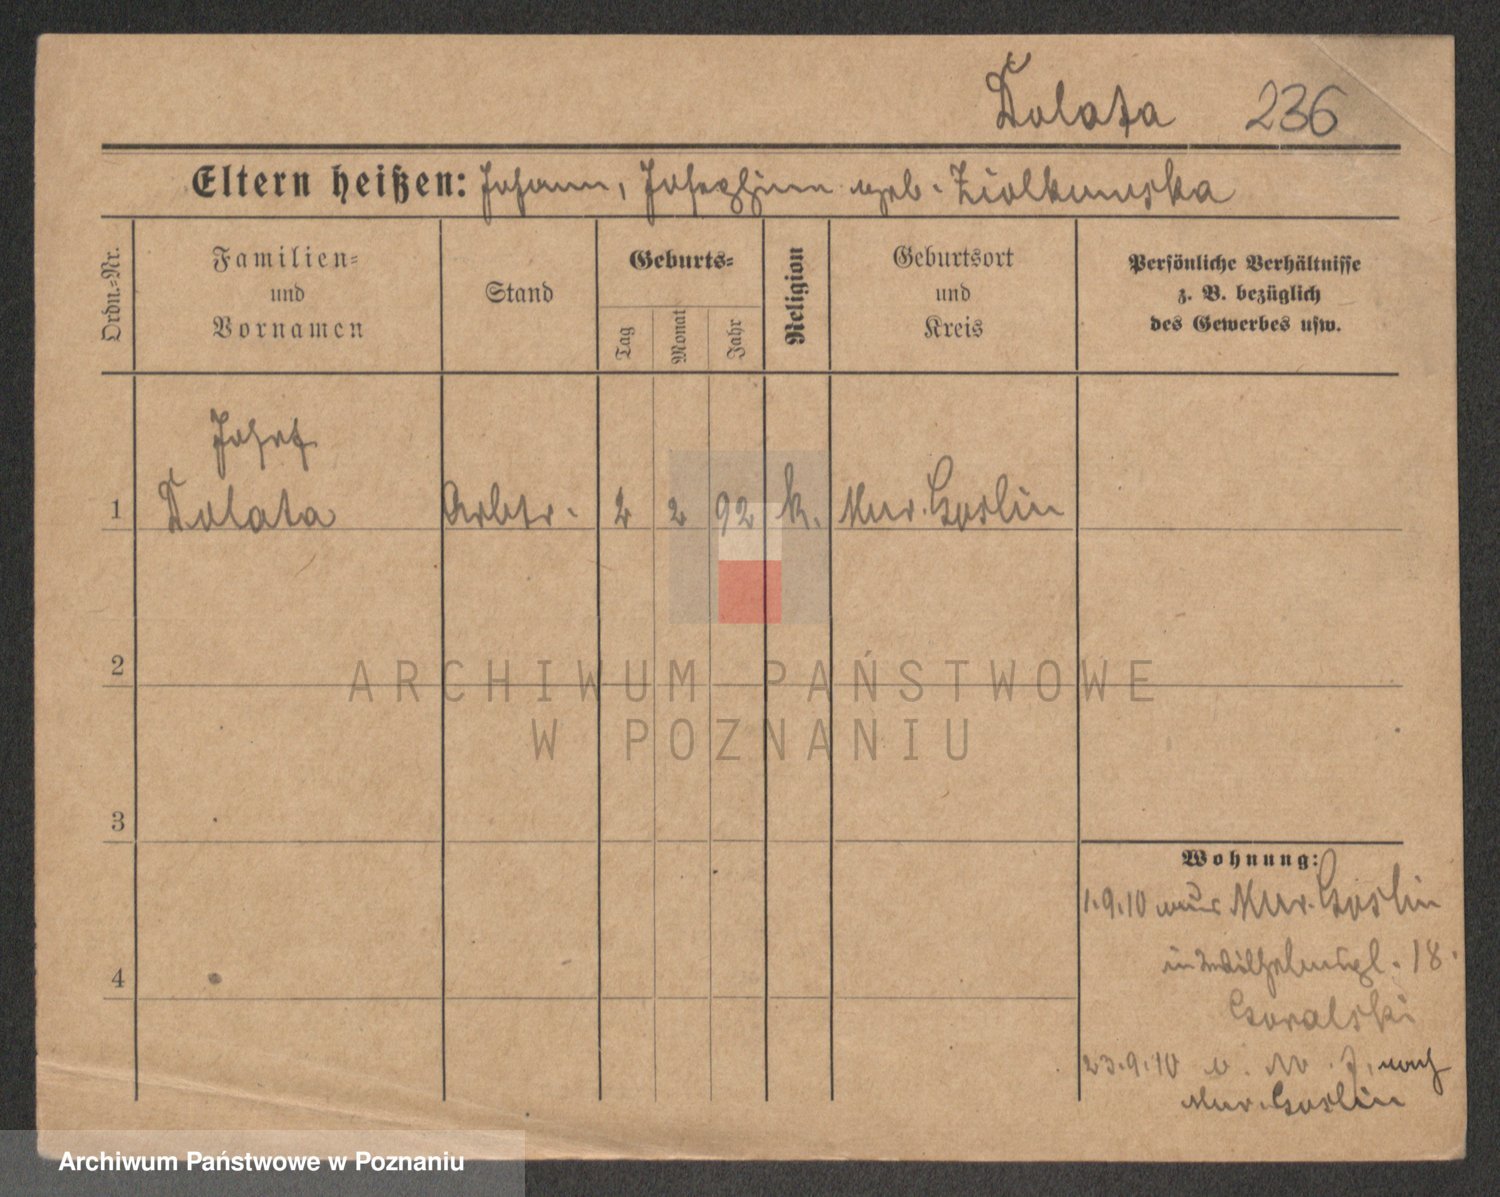 Dolata 236
Eltern heißen: Johann, Josephina geb. Ziolkowska
Ordn.-Nr.
Familien-
und
Vornamen
Stand
Geburts-
Tag
Monat
Jahr
Religion
Geburtsort
und
Kreis
Persönliche Verhältnisse
z. B. bezüglich
des Gewerbes usw.
Josef
1 Dolata Arbtr. 2 2 92 k. Mur. Goslin
2
3
4
Wohnung:
1.9.10 aus Mur. Goslin
in Wilhelmspl. 18.
Goralski
23.9.10 nach
Mur. Goslin
ARCHIWUM PAŃSTWOWE
W POZNANIU
Archiwum Państwowe w Poznaniu